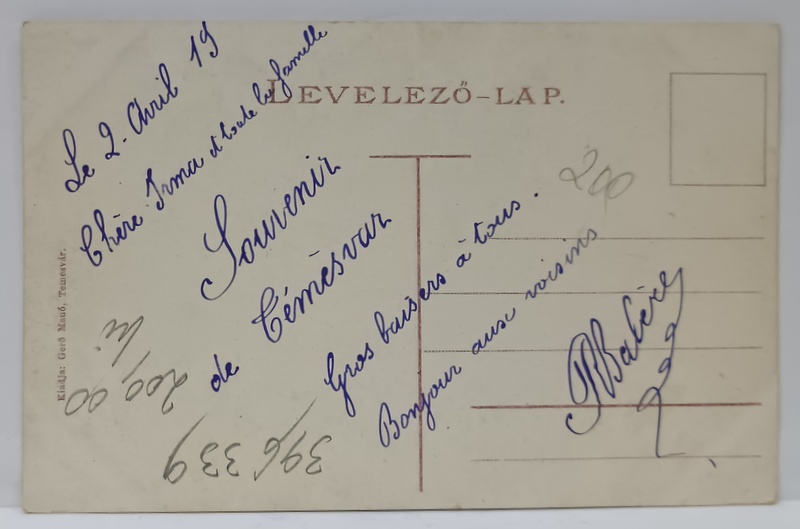 LEVELEZŐ-LAP.
Le 2 Avril 19
Chère Irma et toute la famille
Souvenir
de Témèsvar
Gros baisers à tous.
Bonjour aux voisins
200
Kiadja: Gerő Manó, Temesvár.
200,00
lei
396 339